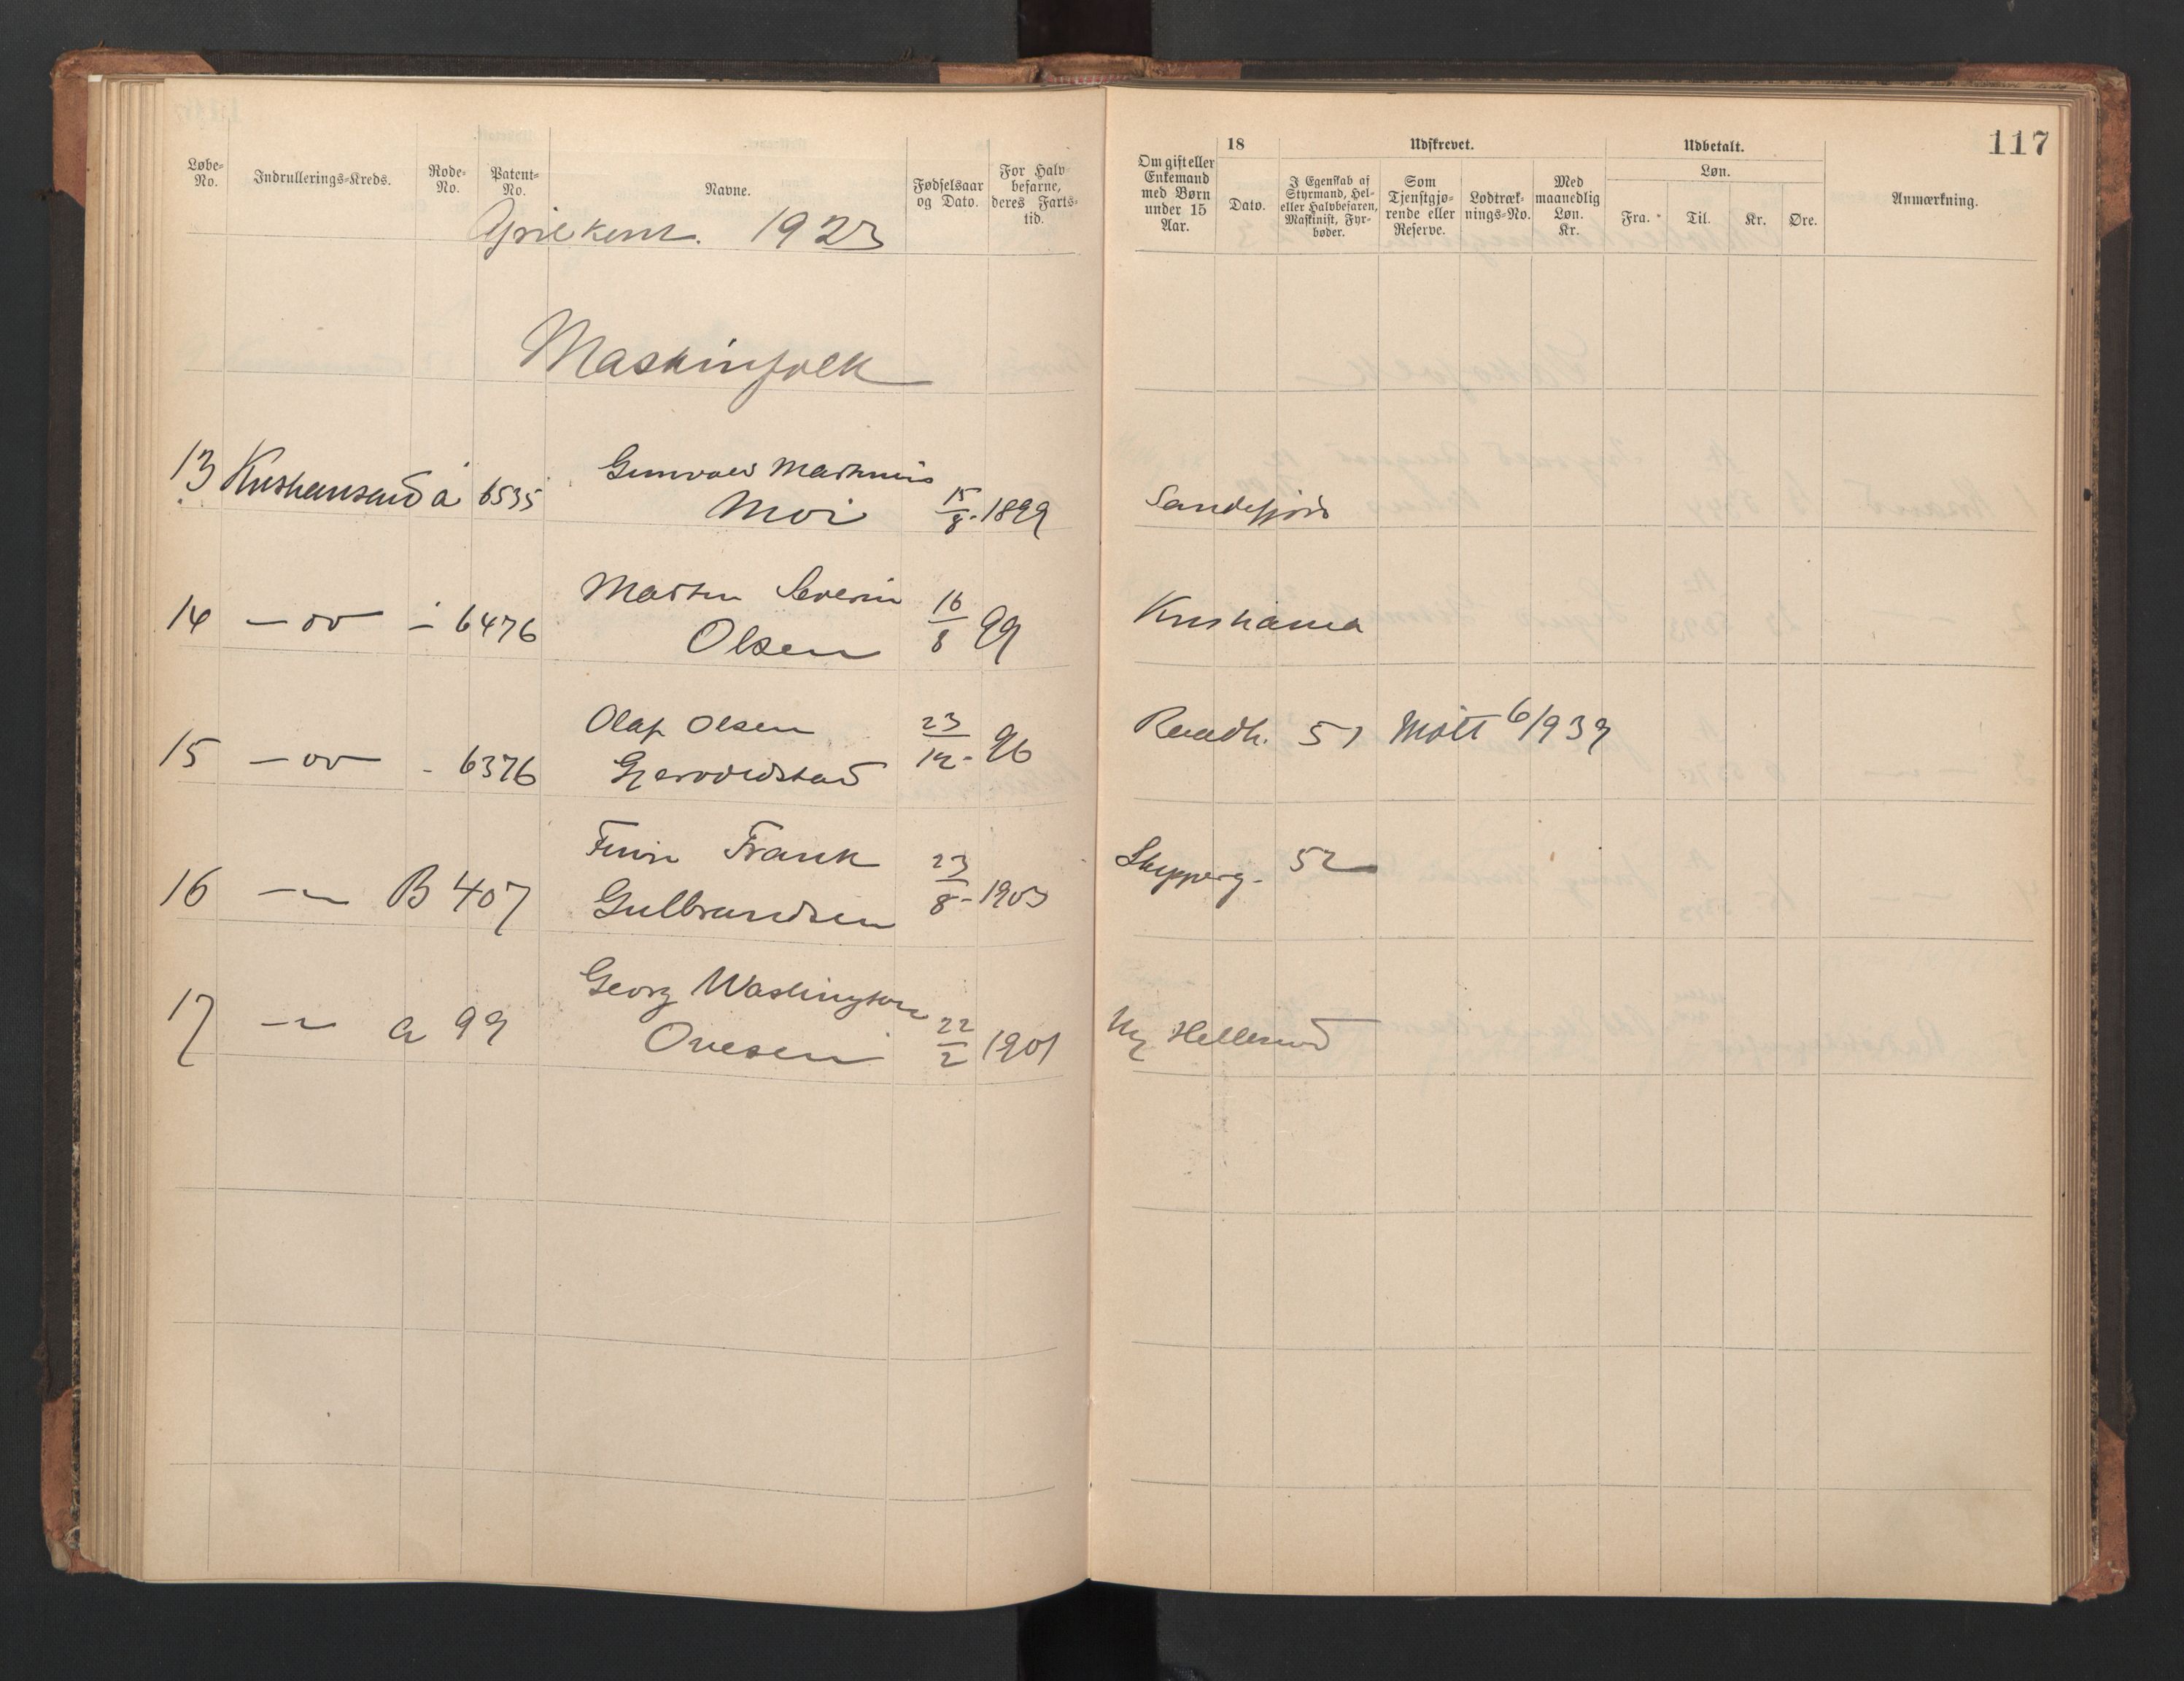 117
Løbe-No. Indrullerings-Kreds. Rode-No. Patent-No. Navne. Fødselsaar og Dato. For Halvbefarne, deres Fartstid.
Om gift eller Enkemand med Børn under 15 Aar. 18 Dato. Udskrevet. I Egenskab af Styrmand, Hel- eller Halvbefaren, Maskinist, Fyrbøder. Som Tjenstgjørende eller Reserve. Lodtræknings-No. Med maanedlig Løn. Kr. Udbetalt. Løn. Fra. Til. Kr. Øre. Anmærkning.
April kont. 1923
Maskinfolk
13 Kristiansand a 6535 Gunvald Mathinius
Moi 15/8-1899 Sandefjord
14 — do — - 6476 Martin Severin
Olsen 16/8 99 Kristiania
15 — do — - 6376 Olaf Olsen
23/12-96 Raadh. 51 Møtt 6/1939
16 — B 407 Finn Frank
Gulbrandsen 23/8-1903 Skipperg. 52
17 — a 99 Georg Washington
Ovesen 22/2 1901 Ny Hellesund